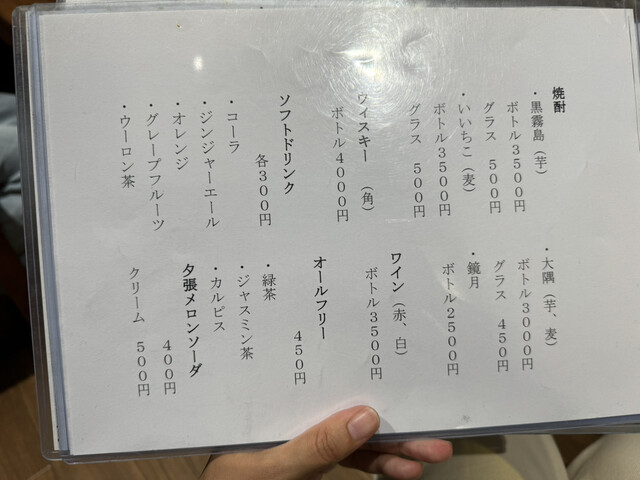 焼酎
・黒霧島（芋）
ボトル３５００円
グラス　５００円
・いいちこ（麦）
ボトル３５００円
グラス　５００円
ウィスキー　（角）
ボトル４０００円
ソフトドリンク
各３００円
・コーラ
・ジンジャーエール
・オレンジ
・グレープフルーツ
・ウーロン茶
・大隅（芋、麦）
ボトル３０００円
グラス　４５０円
・鏡月
ボトル２５００円
ワイン（赤、白）
ボトル３５００円
オールフリー
４５０円
・緑茶
・ジャスミン茶
・カルピス
夕張メロンソーダ
４００円
クリーム　５００円